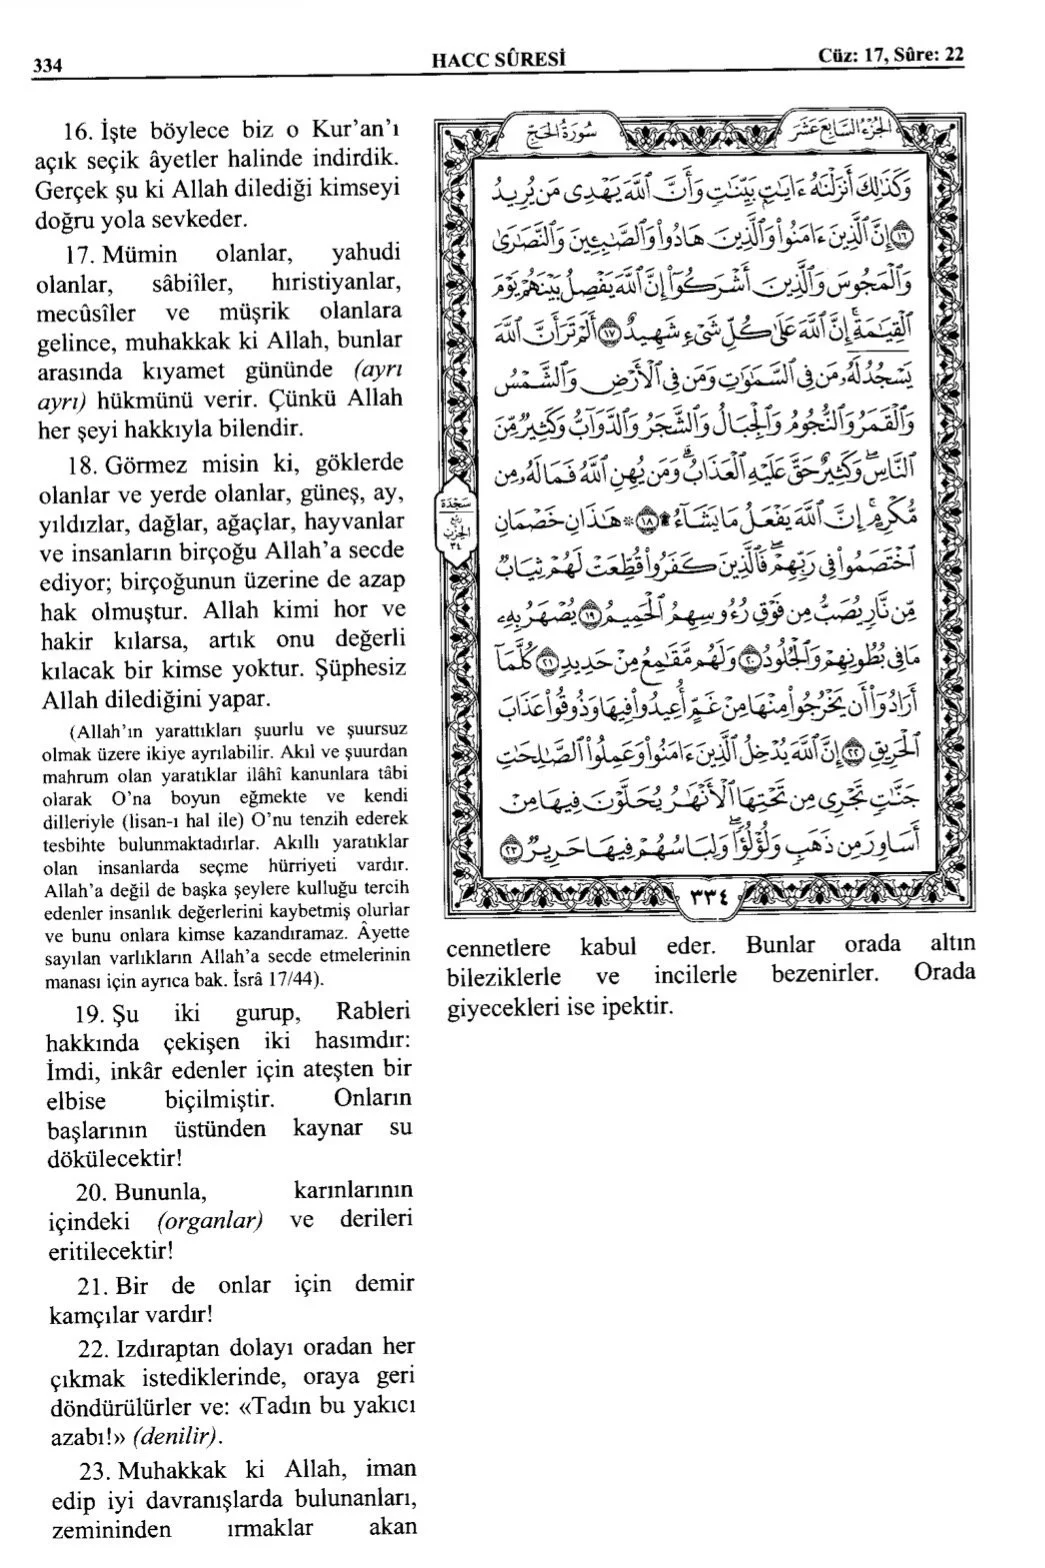 334
HACC SÛRESİ
Cüz: 17, Sûre: 22
16. İşte böylece biz o Kur’an’ı
açık seçik âyetler halinde indirdik.
Gerçek şu ki Allah dilediği kimseyi
doğru yola sevkeder.
17. Mümin olanlar, yahudi
olanlar, sâbiîler, hıristiyanlar,
mecûsîler ve müşrik olanlara
gelince, muhakkak ki Allah, bunlar
arasında kıyamet gününde (ayrı
ayrı) hükmünü verir. Çünkü Allah
her şeyi hakkıyla bilendir.
18. Görmez misin ki, göklerde
olanlar ve yerde olanlar, güneş, ay,
yıldızlar, dağlar, ağaçlar, hayvanlar
ve insanların birçoğu Allah’a secde
ediyor; birçoğunun üzerine de azap
hak olmuştur. Allah kimi hor ve
hakir kılarsa, artık onu değerli
kılacak bir kimse yoktur. Şüphesiz
Allah dilediğini yapar.
(Allah’ın yarattıkları şuurlu ve şuursuz
olmak üzere ikiye ayrılabilir. Akıl ve şuurdan
mahrum olan yaratıklar ilâhî kanunlara tâbi
olarak O’na boyun eğmekte ve kendi
dilleriyle (lisan-ı hal ile) O’nu tenzih ederek
tesbihte bulunmaktadırlar. Akıllı yaratıklar
olan insanlarda seçme hürriyeti vardır.
Allah’a değil de başka şeylere kulluğu tercih
edenler insanlık değerlerini kaybetmiş olurlar
ve bunu onlara kimse kazandıramaz. Âyette
sayılan varlıkların Allah’a secde etmelerinin
manası için ayrıca bak. İsrâ 17/44).
19. Şu iki gurup, Rableri
hakkında çekişen iki hasımdır:
İmdi, inkâr edenler için ateşten bir
elbise biçilmiştir. Onların
başlarının üstünden kaynar su
dökülecektir!
20. Bununla, karınlarının
içindeki (organlar) ve derileri
eritilecektir!
21. Bir de onlar için demir
kamçılar vardır!
22. Izdıraptan dolayı oradan her
çıkmak istediklerinde, oraya geri
döndürülürler ve: «Tadın bu yakıcı
azabı!» (denilir).
23. Muhakkak ki Allah, iman
edip iyi davranışlarda bulunanları,
zemininden ırmaklar akan
الجزء السابع عشر
سورة الحج
وَكَذَٰلِكَ أَنزَلْنَٰهُ ءَايَٰتٍۭ بَيِّنَٰتٍ وَأَنَّ ٱللَّهَ يَهْدِى مَن يُرِيدُ
١٦ إِنَّ ٱلَّذِينَ ءَامَنُوا۟ وَٱلَّذِينَ هَادُوا۟ وَٱلصَّٰبِـِٔينَ وَٱلنَّصَٰرَىٰ
وَٱلْمَجُوسَ وَٱلَّذِينَ أَشْرَكُوٓا۟ إِنَّ ٱللَّهَ يَفْصِلُ بَيْنَهُمْ يَوْمَ
ٱلْقِيَٰمَةِ ۚ إِنَّ ٱللَّهَ عَلَىٰ كُلِّ شَىْءٍ شَهِيدٌ ١٧ أَلَمْ تَرَ أَنَّ ٱللَّهَ
يَسْجُدُ لَهُۥ مَن فِى ٱلسَّمَٰوَٰتِ وَمَن فِى ٱلْأَرْضِ وَٱلشَّمْسُ
وَٱلْقَمَرُ وَٱلنُّجُومُ وَٱلْجِبَالُ وَٱلشَّجَرُ وَٱلدَّوَآبُّ وَكَثِيرٌ مِّنَ
ٱلنَّاسِ ۖ وَكَثِيرٌ حَقَّ عَلَيْهِ ٱلْعَذَابُ ۗ وَمَن يُهِنِ ٱللَّهُ فَمَا لَهُۥ مِن
مُّكْرِمٍ ۚ إِنَّ ٱللَّهَ يَفْعَلُ مَا يَشَآءُ ۩ ١٨ ۞ هَٰذَانِ خَصْمَانِ
ٱخْتَصَمُوا۟ فِى رَبِّهِمْ ۖ فَٱلَّذِينَ كَفَرُوا۟ قُطِّعَتْ لَهُمْ ثِيَابٌ
مِّن نَّارٍ يُصَبُّ مِن فَوْقِ رُءُوسِهِمُ ٱلْحَمِيمُ ١٩ يُصْهَرُ بِهِۦ
مَا فِى بُطُونِهِمْ وَٱلْجُلُودُ ٢٠ وَلَهُم مَّقَٰمِعُ مِنْ حَدِيدٍ ٢١ كُلَّمَآ
أَرَادُوٓا۟ أَن يَخْرُجُوا۟ مِنْهَا مِنْ غَمٍّ أُعِيدُوا۟ فِيهَا وَذُوقُوا۟ عَذَابَ
ٱلْحَرِيقِ ٢٢ إِنَّ ٱللَّهَ يُدْخِلُ ٱلَّذِينَ ءَامَنُوا۟ وَعَمِلُوا۟ ٱلصَّٰلِحَٰتِ
جَنَّٰتٍ تَجْرِى مِن تَحْتِهَا ٱلْأَنْهَٰرُ يُحَلَّوْنَ فِيهَا مِنْ
أَسَاوِرَ مِن ذَهَبٍ وَلُؤْلُؤًا ۖ وَلِبَاسُهُمْ فِيهَا حَرِيرٌ ٢٣
سجدة
ربع
الحزب
٣٤
٣٣٤
cennetlere kabul eder. Bunlar orada altın
bileziklerle ve incilerle bezenirler. Orada
giyecekleri ise ipektir.